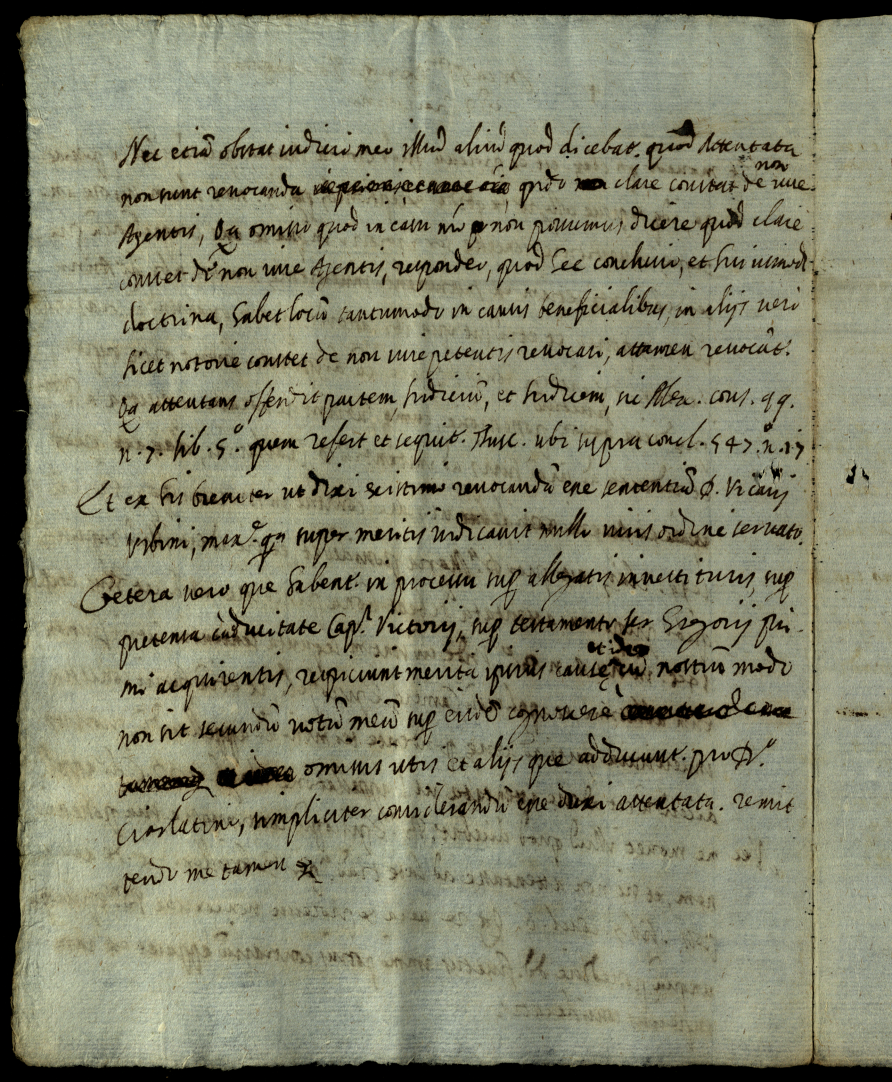 Nec etiã obstat iudicio meo illud aliud quod dicebat. quod Attentata
non sunt revocanda qñdo clare constat de non iure
Agentis, Qa omisso quod in casu nro non possumus dicere quod clare
constet de non iure Agentis, respondeo, quod hec conclusio, et huiusmodi
doctrina, habet locũ tantumodo in causis beneficialibus, in alijs vero
licet notorie constet de non iure petentis revocari, attamen revocãt.
Qa attentans offendit partem, Iudiciũ, et Iudicem, sic Alex. cons. 99.
n. 7. lib. 5.º quem refert et sequit. Tusc. ubi supra concl. 547. n. 17
Et ex his breviter ut dixi existimo revocandã esse sententiã D. Vicarij
Urbini, max.e qa super meritis iudicavit nullo iuris ordine servato.
Cetera vero que habent. in processu sup allegatis investituris, sup
pretensa caducitate Cap. Victorij, sup testamento ser Gregorij pri-
mi acquirentis, respiciunt merita ipsius cause, nostrum modo
non sit secundũ votũ meũ sup eisdẽ cognoscere
omissis istis et alijs que adducunt. pro D.
Ciarlatini, simpliciter considerandũ esse duxi attentata. remit
tendo me tamen